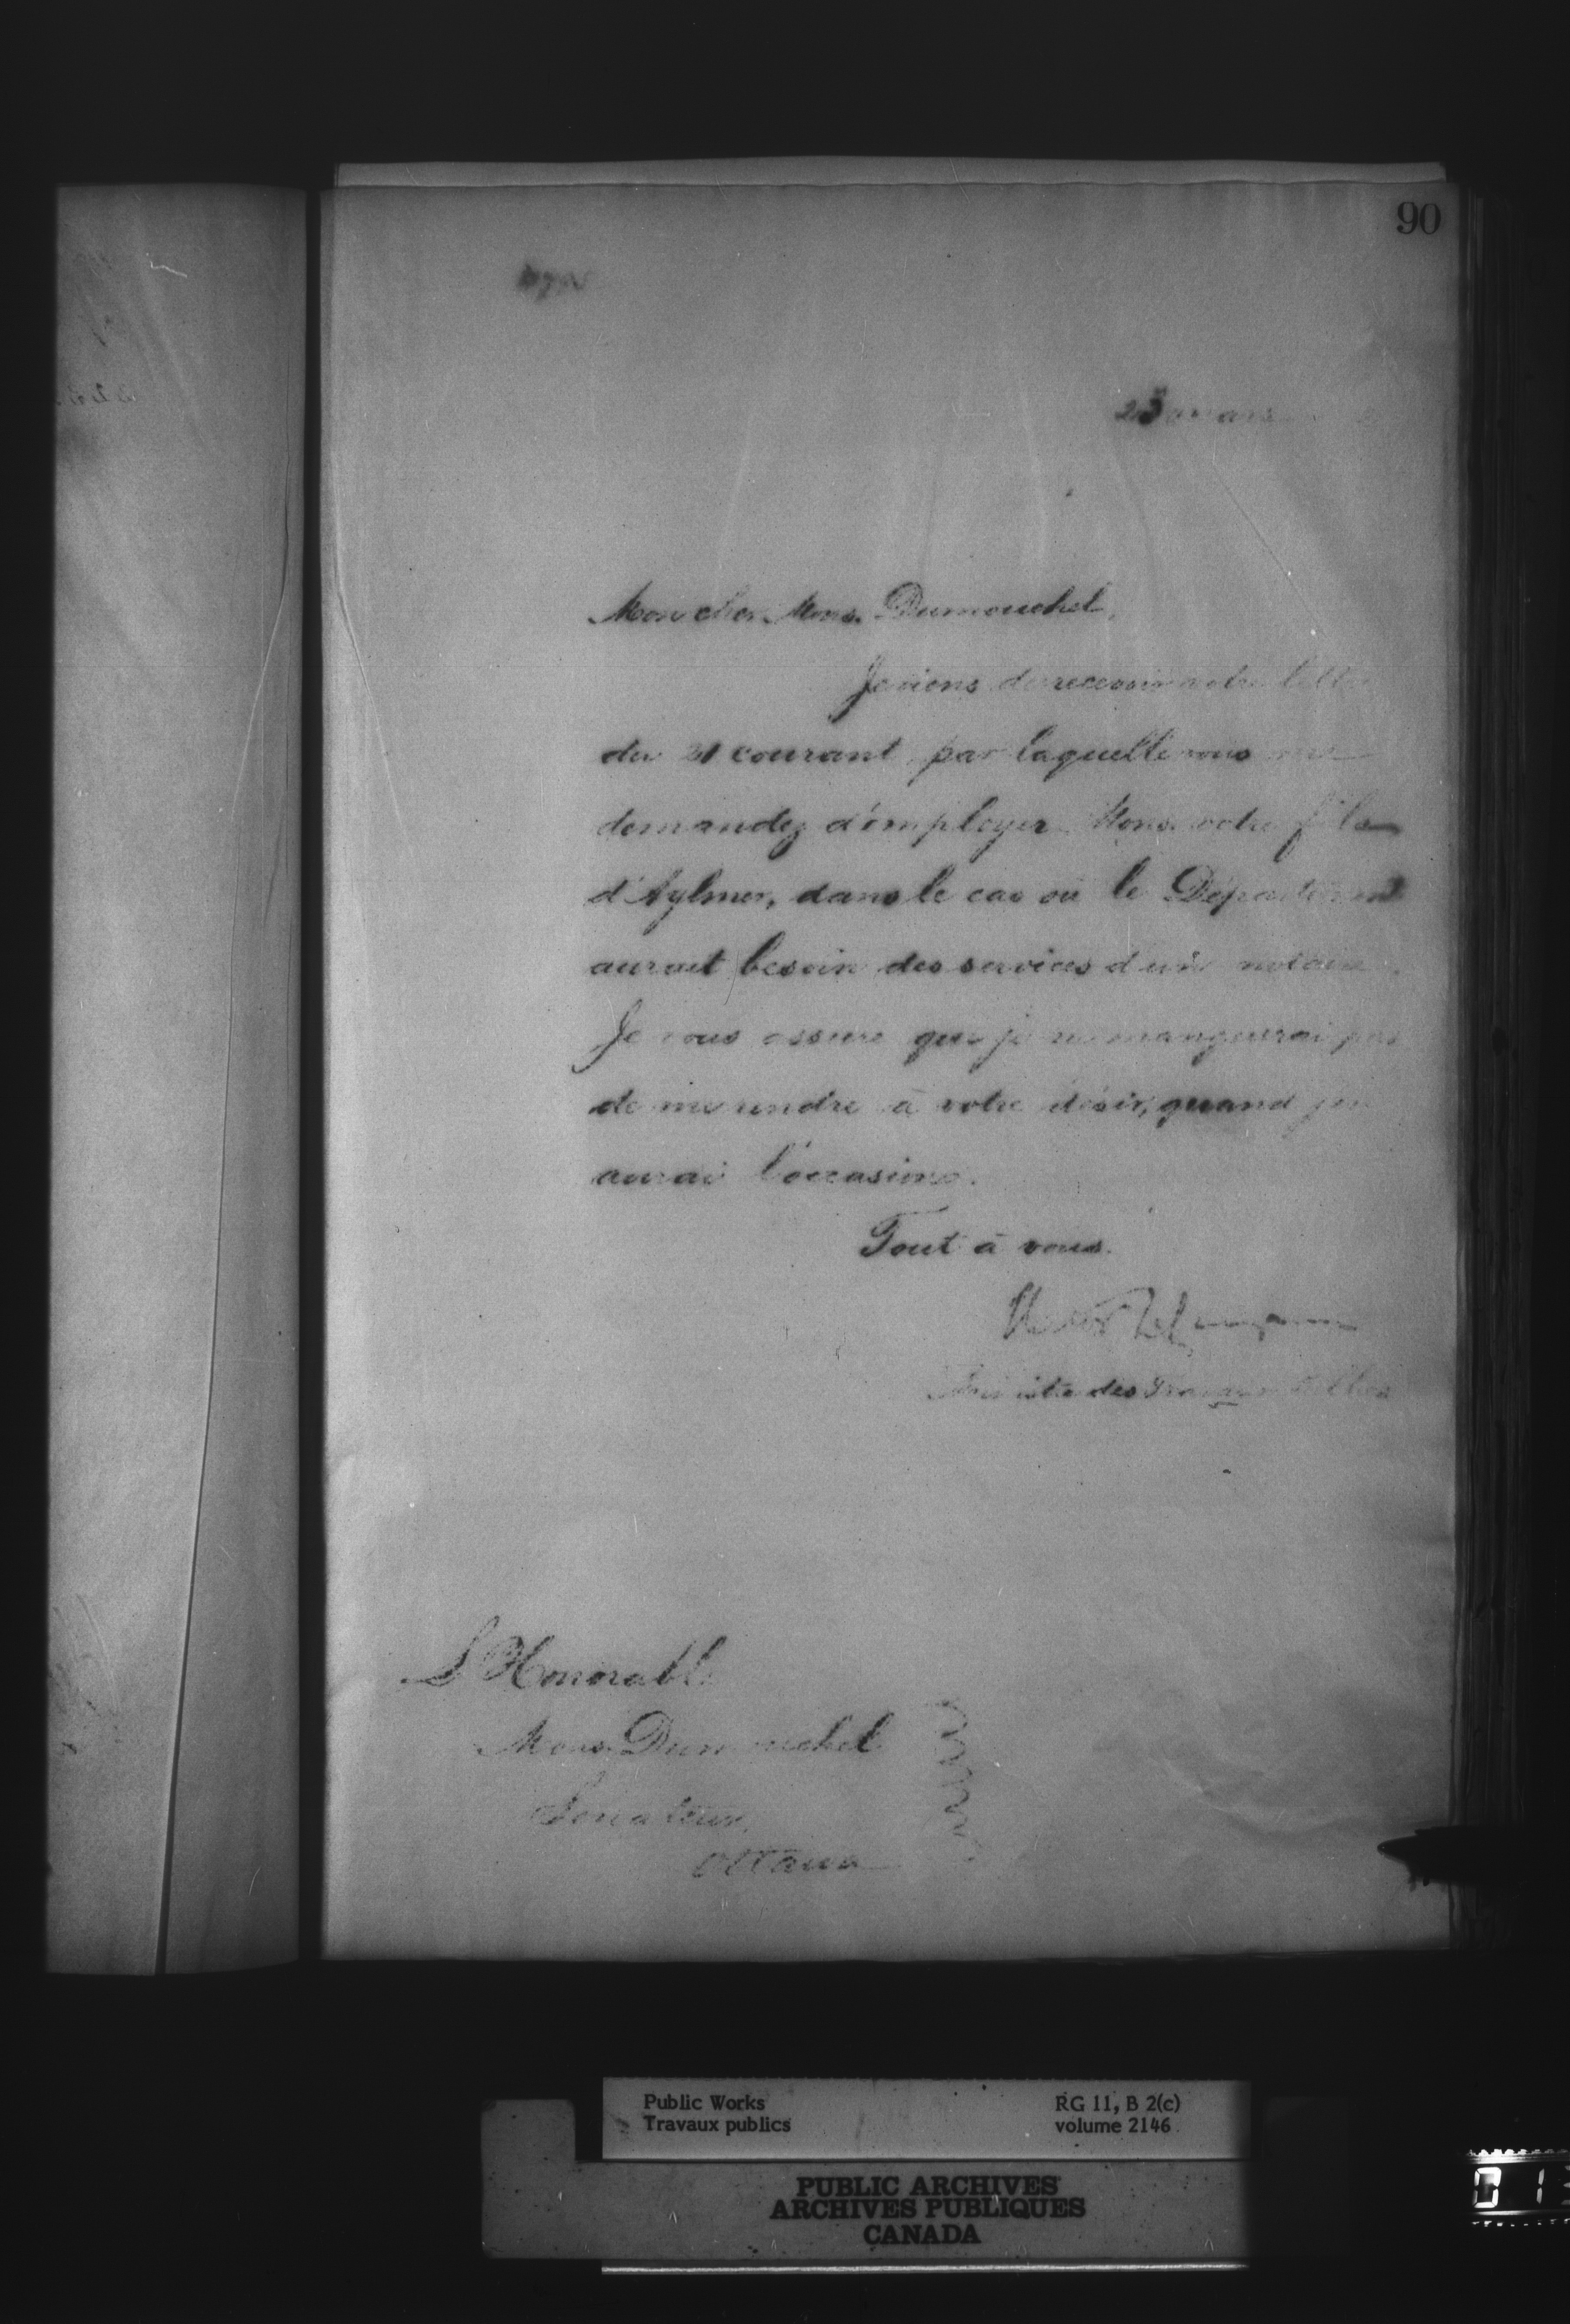 90
23 mars
Mon cher Mons. Dumouchel,
Je viens de recevoir votre lettre
du 21 courant, par laquelle vous me
demandez d'employer Mons. votre fils
d'Aylmer, dans le cas où le Département
aurait besoin des services d'un notaire.
Je vous assure que je ne manquerai pas
de me rendre à votre désir, quand j'en
aurai l'occasion.
Tout à vous.
Ministre des Travaux Publics
L'Honorable
Mons. Dumouchel
Senateur,
Ottawa
Public Works
Travaux publics
RG 11, B 2(c)
volume 2146
PUBLIC ARCHIVES
ARCHIVES PUBLIQUES
CANADA